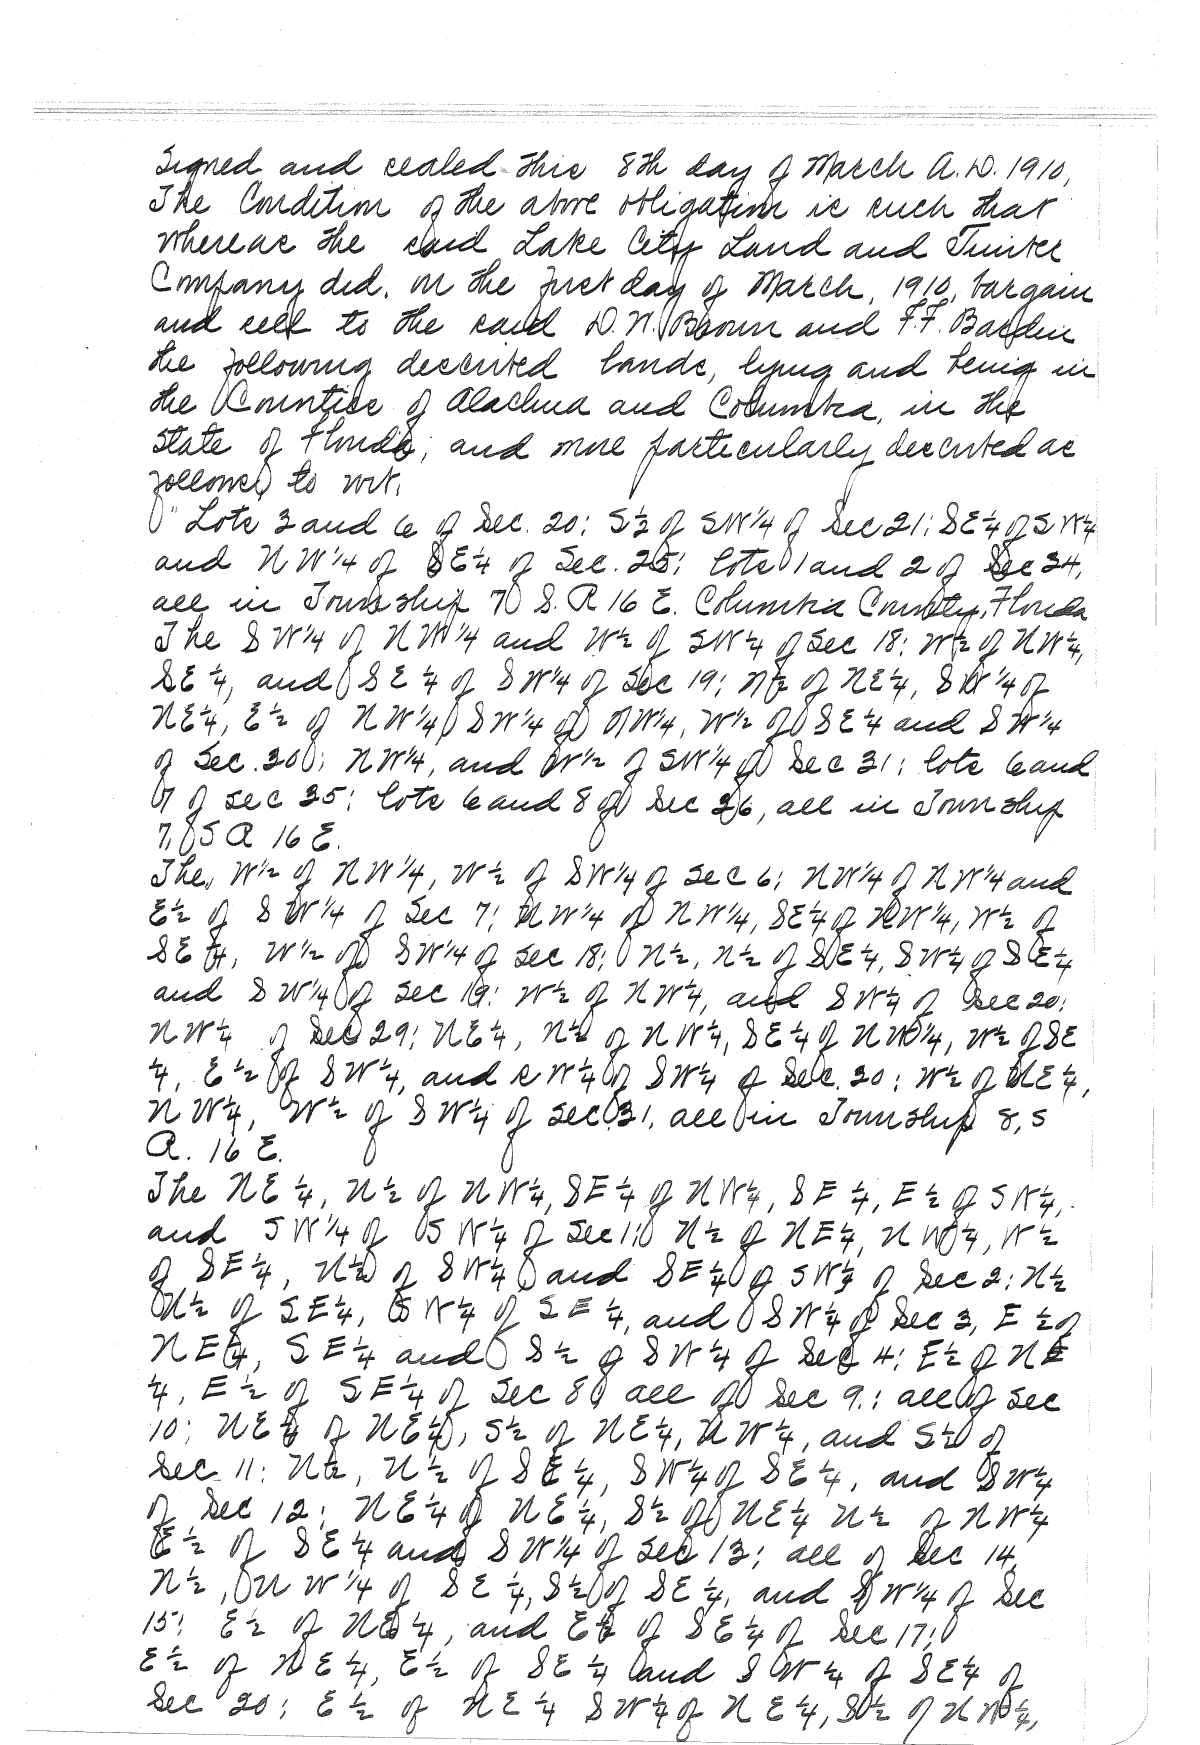 Signed and sealed this 8th day of March A.D. 1910,
The Condition of the above obligation is such that
whereas the said Lake City Land and Timber
Company did, on the first day of March, 1910, bargain
and sell to the said D. N. Brown and F.F. Bardin
the following described lands, lying and being in
the Counties of Alachua and Columbia, in the
State of Florida, and more particularly described as
follows, to wit,
"Lots 3 and 6 of Sec. 20; S½ of SW¼ of Sec 21; SE¼ of SW¼
and NW¼ of SE¼ of Sec. 25; lots 1 and 2 of Sec 34,
all in Township 7 S. R 16 E. Columbia County, Florida
The SW¼ of NW¼ and W½ of SW¼ of Sec 18; W½ of NW¼,
SE¼, and SE¼ of SW¼ of Sec 19; N½ of NE¼, SW¼ of
NE¼, E½ of NW¼, SW¼ of NW¼, W½ of SE¼ and SW¼
of Sec. 30; NW¼, and W½ of SW¼ of Sec 31; lots 6 and
7 of Sec 35; lots 6 and 8 of Sec 36, all in Township
7, S R 16 E.
The, W½ of NW¼, W½ of SW¼ of Sec 6; NW¼ of NW¼ and
E½ of SW¼ of Sec 7; NW¼ of NW¼, SE¼ of NW¼, W½ of
SE¼, W½ of SW¼ of Sec 18; N½, N½ of SE¼, SW¼ of SE¼
and SW¼ of Sec 19; W½ of NW¼, and SW¼ of Sec 20;
NW¼ of Sec 29; NE¼, N½ of NW¼, SE¼ of NW¼, W½ of SE
¼, E½ of SW¼, and SW¼ of SW¼ of Sec. 30; W½ of NE¼,
NW¼, W½ of SW¼ of Sec 31, all in Township 8, S
R. 16 E.
The NE¼, N½ of NW¼, SE¼ of NW¼, SE¼, E½ of SW¼,
and SW¼ of SW¼ of Sec 1; N½ of NE¼, NW¼, W½
of SE¼, N½ of SW¼ and SE¼ of SW¼ of Sec 2; N½
N½ of SE¼, SW¼ of SE¼, and SW¼ of Sec 3, E½ of
NE¼, SE¼ and S½ of SW¼ of Sec 4; E½ of NE
¼, E½ of SE¼ of Sec 8; all of Sec 9.; all of Sec
10; NE¼ of NE¼, S½ of NE¼, NW¼, and S½ of
Sec. 11; N½, N½ of SE¼, SW¼ of SE¼, and SW¼
of Sec 12; NE¼ of NE¼, S½ of NE¼ N½ of NW¼
E½ of SE¼ and SW¼ of Sec 13; all of Sec 14,
N½, NW¼ of SE¼, S½ of SE¼, and SW¼ of Sec
15; E½ of NE¼, and E½ of SE¼ of Sec 17;
E½ of NE¼, E½ of SE¼ and SW¼ of SE¼ of
Sec 20; E½ of NE¼ SW¼ of NE¼, S½ of NW¼,